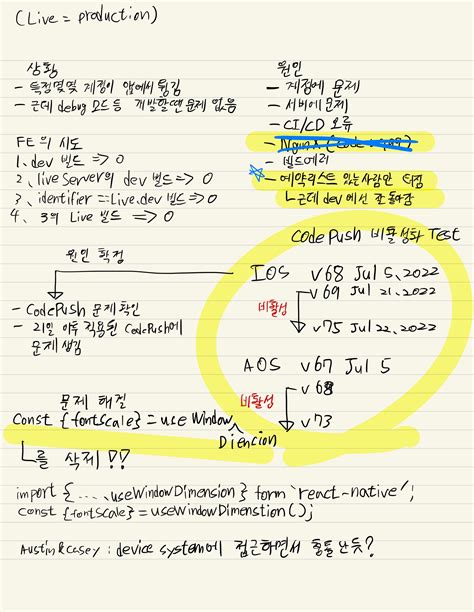 (Live = production)
상황
- 특정몇몇 계정이 앱에서 튕김
- 근데 debug 모드 등 개발할땐 문제 없음
원인
- 계정에 문제
- 서버에 문제
- CI/CD 오류
- Nginx
- 빌드에러
- 예약리스트 있는사람만 터짐
└ 근데 dev에선 잘 돌아감
FE의 시도
1、dev 빌드 => 0
2、live server의 dev 빌드 => 0
3、identifier = Live.dev 빌드 => 0
4、3의 Live 빌드 => 0
CodePush 비활성화 Test
IOS v68 Jul 5, 2022
v69 Jul 21, 2022
비활성
v75 Jul 22, 2022
AOS v67 Jul 5
v68
비활성
v73
원인 확정
- CodePush 문제 확인
- 21일 이후 적용된 CodePush에
문제 생김
문제 해결
Const {fontScale} = use Window
Diencion
└를 삭제!!
import {...., useWindowDimension} form 'react-native';
const {fontScale} = useWindowDimenstion();
Austin & Casey : device system에 접근하면서 충돌 난듯?